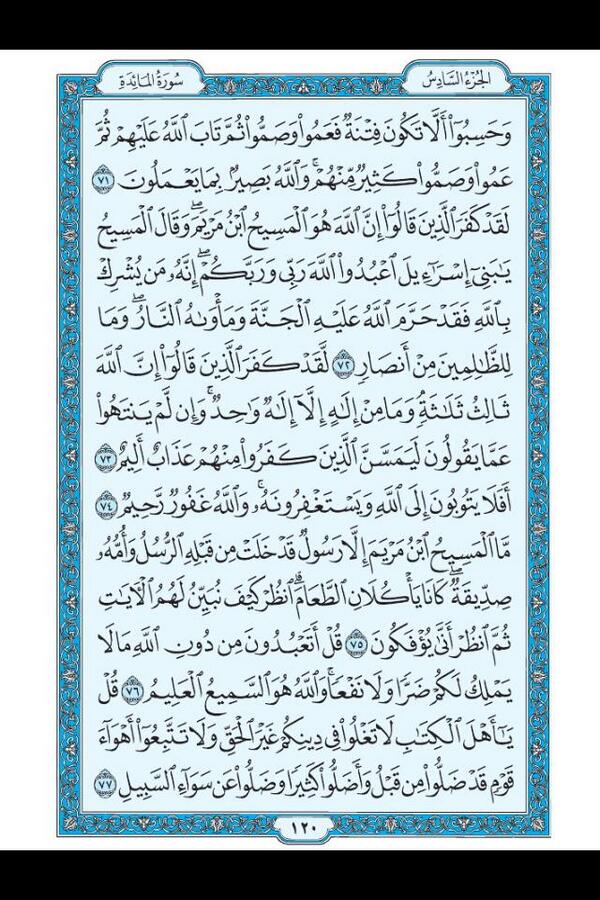 الجزء السادس
سورة المائدة
وَحَسِبُوٓا۟ أَلَّا تَكُونَ فِتْنَةٌ فَعَمُوا۟ وَصَمُّوا۟ ثُمَّ تَابَ ٱللَّهُ عَلَيْهِمْ ثُمَّ
عَمُوا۟ وَصَمُّوا۟ كَثِيرٌ مِّنْهُمْ ۚ وَٱللَّهُ بَصِيرٌۢ بِمَا يَعْمَلُونَ ٧١
لَقَدْ كَفَرَ ٱلَّذِينَ قَالُوٓا۟ إِنَّ ٱللَّهَ هُوَ ٱلْمَسِيحُ ٱبْنُ مَرْيَمَ ۖ وَقَالَ ٱلْمَسِيحُ
يَٰبَنِىٓ إِسْرَٰٓءِيلَ ٱعْبُدُوا۟ ٱللَّهَ رَبِّى وَرَبَّكُمْ ۖ إِنَّهُۥ مَن يُشْرِكْ
بِٱللَّهِ فَقَدْ حَرَّمَ ٱللَّهُ عَلَيْهِ ٱلْجَنَّةَ وَمَأْوَىٰهُ ٱلنَّارُ ۖ وَمَا
لِلظَّٰلِمِينَ مِنْ أَنصَارٍ ٧٢ لَّقَدْ كَفَرَ ٱلَّذِينَ قَالُوٓا۟ إِنَّ ٱللَّهَ
ثَالِثُ ثَلَٰثَةٍ ۘ وَمَا مِنْ إِلَٰهٍ إِلَّآ إِلَٰهٌ وَٰحِدٌ ۚ وَإِن لَّمْ يَنتَهُوا۟
عَمَّا يَقُولُونَ لَيَمَسَّنَّ ٱلَّذِينَ كَفَرُوا۟ مِنْهُمْ عَذَابٌ أَلِيمٌ ٧٣
أَفَلَا يَتُوبُونَ إِلَى ٱللَّهِ وَيَسْتَغْفِرُونَهُۥ ۚ وَٱللَّهُ غَفُورٌ رَّحِيمٌ ٧٤
مَّا ٱلْمَسِيحُ ٱبْنُ مَرْيَمَ إِلَّا رَسُولٌ قَدْ خَلَتْ مِن قَبْلِهِ ٱلرُّسُلُ وَأُمُّهُۥ
صِدِّيقَةٌ ۖ كَانَا يَأْكُلَانِ ٱلطَّعَامَ ۗ ٱنظُرْ كَيْفَ نُبَيِّنُ لَهُمُ ٱلْـَٔايَٰتِ
ثُمَّ ٱنظُرْ أَنَّىٰ يُؤْفَكُونَ ٧٥ قُلْ أَتَعْبُدُونَ مِن دُونِ ٱللَّهِ مَا لَا
يَمْلِكُ لَكُمْ ضَرًّا وَلَا نَفْعًا ۚ وَٱللَّهُ هُوَ ٱلسَّمِيعُ ٱلْعَلِيمُ ٧٦ قُلْ
يَٰٓأَهْلَ ٱلْكِتَٰبِ لَا تَغْلُوا۟ فِى دِينِكُمْ غَيْرَ ٱلْحَقِّ وَلَا تَتَّبِعُوٓا۟ أَهْوَآءَ
قَوْمٍ قَدْ ضَلُّوا۟ مِن قَبْلُ وَأَضَلُّوا۟ كَثِيرًا وَضَلُّوا۟ عَن سَوَآءِ ٱلسَّبِيلِ ٧٧
١٢٠